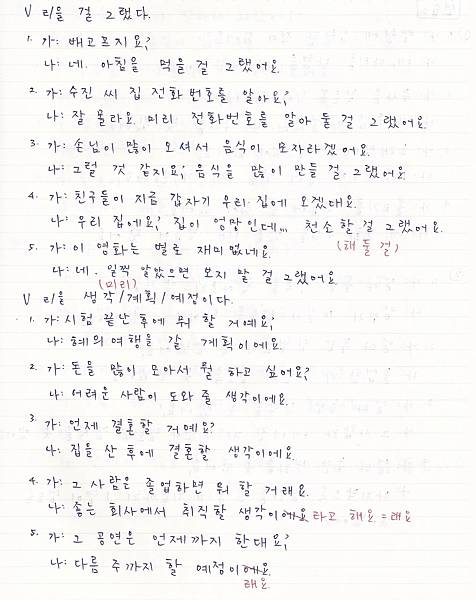 V ㄹ/을 걸 그랬다.
1. 가: 배고프지요?
나: 네. 아침을 먹을 걸 그랬어요.
2. 가: 수진 씨 집 전화 번호를 알아요?
나: 잘 몰라요. 미리 전화번호를 알아 둘 걸 그랬어요.
3. 가: 손님이 많이 오셔서 음식이 모자라겠어요.
나: 그럴 것 같지요? 음식을 많이 만들 걸 그랬어요.
4. 가: 친구들이 지금 갑자기 우리 집에 오겠대요.
나: 우리 집에요? 집이 엉망인데... 천소할 걸 그랬어요.
(해 둘 걸)
5. 가: 이 영화는 별로 재미없네요.
나: 네. 일찍 알았으면 보지 말 걸 그랬어요.
(미리)
V ㄹ/을 생각/계획/예정이다.
1. 가: 시험 끝난 후에 뭐 할 거예요?
나: 해외 여행을 갈 계획이에요.
2. 가: 돈을 많이 모아서 뭘 하고 싶어요?
나: 어려운 사람이 도와 줄 생각이에요.
3. 가: 언제 결혼할 거예요?
나: 집을 산 후에 결혼할 생각이에요.
4. 가: 그 사람은 졸업하면 뭐 할 거래요.
나: 좋는 회사에서 취직할 생각이에요 라고 해요 = 래요
5. 가: 그 공연은 언제까지 한대요?
나: 다름 주까지 할 예정이에요.
래요.